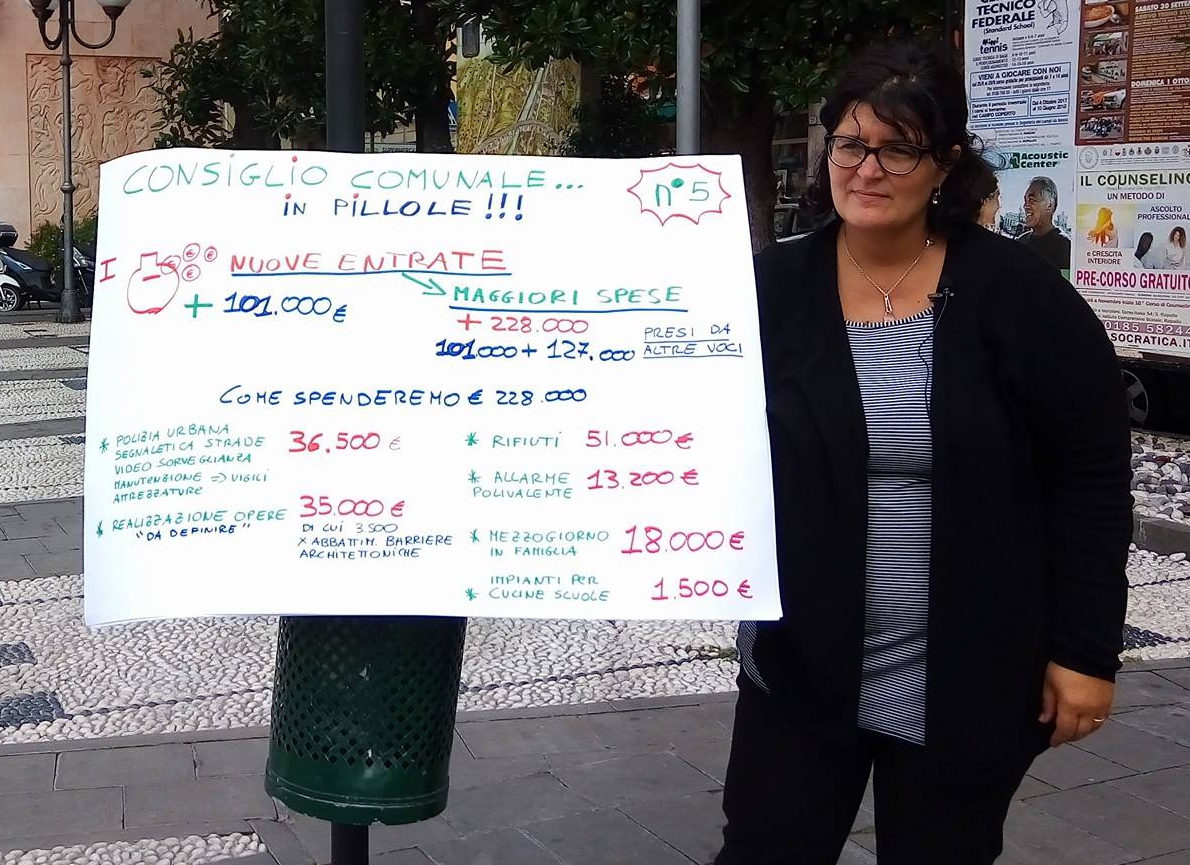 CONSIGLIO COMUNALE...
IN PILLOLE!!!
n°5
I
NUOVE ENTRATE
+ 101.000 €
MAGGIORI SPESE
+ 228.000
101000 + 127.000
PRESI DA
ALTRE VOCI
COME SPENDEREMO € 228.000
* POLIZIA URBANA
SEGNALETICA STRADE
VIDEO SORVEGLIANZA
MANUTENZIONE => VIGILI
ATTREZZATURE
36.500 €
* REALIZZAZIONE OPERE
"DA DEFINIRE"
35.000 €
DI CUI 3.500
X ABBATTIM. BARRIERE
ARCHITETTONICHE
* RIFIUTI 51.000 €
* ALLARME
POLIVALENTE
13.200 €
* MEZZOGIORNO
IN FAMIGLIA
18.000 €
IMPIANTI PER
* CUCINE SCUOLE
1.500 €
TECNICO
FEDERALE
(Standard School)
tennis
VIENI A GIOCARE CON NOI
CAMPO COPERTO
SABATO 30
DOMENICA 1
Acoustic
Center
IL COUNSELING
UN METODO DI
ASCOLTO
PROFESSIONAL
e CRESCITA
INTERIORE
PRE-CORSO GRATUITO
0185 58244
SOCRATICA.IT